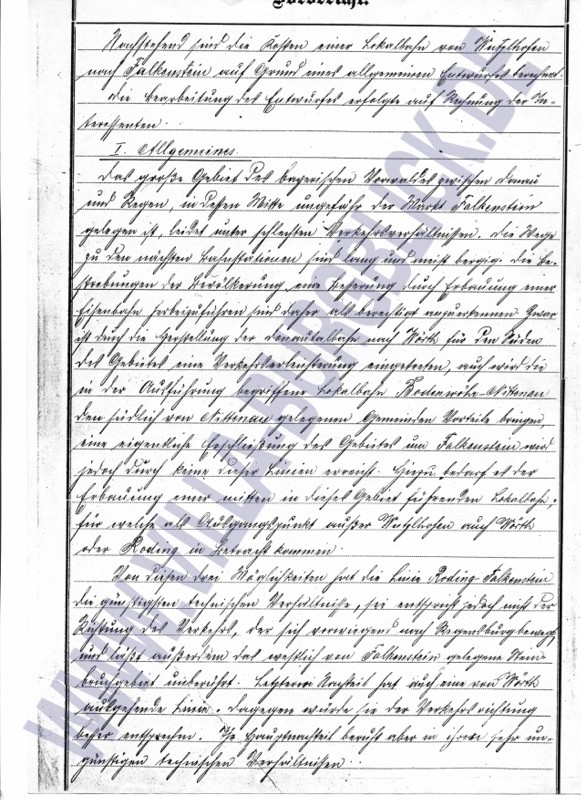 Vorbericht.
Nachstehend sind die Kosten einer Lokalbahn von Wutzlhofen
nach Falkenstein auf Grund eines allgemeinen Entwurfes berechnet.
Die Bearbeitung des Entwurfes erfolgte auf Rechnung der In-
teressenten.
I. Allgemeines.
Das große Gebiet des bayerischen Vorwaldes zwischen Donau
und Regen, in dessen Mitte ungefähr der Markt Falkenstein
gelegen ist, leidet unter schlechten Verkehrsverhältnissen. Die Wege
zu den nächsten Bahnstationen sind lang und meist bergig. Die Be-
strebungen der Bevölkerung, eine Besserung durch Erbauung einer
Eisenbahn herbeizuführen sind daher als berechtigt anzuerkennen. Zwar
ist durch die Herstellung der Donautalbahn nach Wörth für den Süden
des Gebietes eine Verkehrserleichterung eingetreten, auch wird die
in der Ausführung begriffene Lokalbahn Bodenwöhr-Nittenau
den südlich von Nittenau gelegenen Gemeinden Vorteile bringen,
eine eigentliche Erschließung des Gebietes um Falkenstein wird
jedoch durch keine dieser Linien erreicht. Hiezu bedarf es der
Erbauung einer mitten in dieses Gebiet führenden Lokalbahn,
für welche als Ausgangspunkt außer Wutzlhofen auch Wörth
oder Roding in Betracht kommen.
Von diesen drei Möglichkeiten hat die Linie Roding-Falkenstein
die günstigsten technischen Verhältnisse, sie entspricht jedoch nicht der
Richtung des Verkehrs, der sich vorwiegend nach Regensburg bewegt,
und läßt außerdem das westlich von Falkenstein gelegene Stein-
bruchgebiet unberührt. Letzteren Nachteil hat auch eine von Wörth
ausgehende Linie. Dagegen würde sie der Verkehrsrichtung
besser entsprechen. Ihr Hauptnachteil beruht aber in ihren sehr un-
günstigen technischen Verhältnissen.
WWW.VILLA-BURGBACK.DE